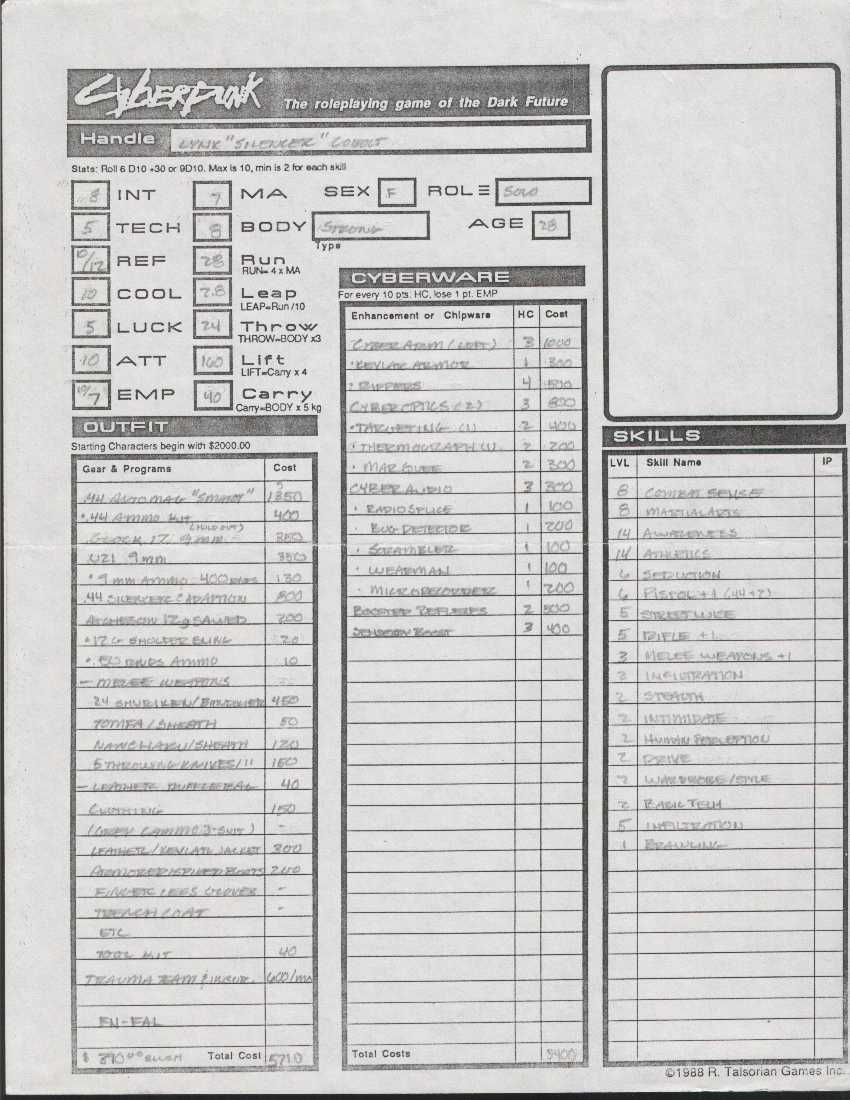 CYBERPUNK
The roleplaying game of the Dark Future
Handle LYNX "SILENCER" COBOLT
Stats: Roll 6 D10 +30 or 9D10. Max is 10, min is 2 for each skill
8 INT 7 MA SEX F ROLE SOLO
5 TECH 8 BODY STRONG AGE 28
Type
10/12 REF 28 Run
RUN= 4 x MA
10 COOL 2.8 Leap
LEAP=Run /10
5 LUCK 24 Throw
THROW=BODY x3
10 ATT 160 Lift
LIFT=Carry x 4
10/7 EMP 40 Carry
Carry=BODY x 5 kg
OUTFIT
Starting Characters begin with $2000.00
Gear & Programs Cost
.44 AUTOMAG "SMART" 1350
.44 AMMO KIT 400
(HOLD OUT)
GLOCK 17 9mm 350
UZI 9mm 350
9mm AMMO 400 RNDS 130
.44 SILENCER 800
ATCHESON 12g SAWED 200
12 G SHOLDER SLING 20
50 RNDS AMMO 10
- MELEE WEAPONS -
24 SHURIKEN/BANDOLIER 450
TONFA/SHEATH 50
NANCHAKU/SHEATH 120
5 THROWING KNIVES/11 150
- LEATHER DUFFLEBAG 40
CLOTHING 150
(GREY CAMMO J-SUIT) -
LEATHER/KEVLAR JACKET 300
ARMORED/SPIKED BOOTS 200
FINGER LESS GLOVES -
TRENCH COAT -
ETC
TOOL KIT 40
TRAUMA TEAM 600/mo
EN-EAL
$ 390.00 SLUSH Total Cost 5710
CYBERWARE
For every 10 pts. HC, lose 1 pt. EMP
Enhancement or Chipware HC Cost
CYBER ARM (LEFT) 3 1000
KEVLAR ARMOR 1 300
RIPPERS 4 500
CYBEROPTICS (2) 3 800
TARGETING (1) 2 400
THERMOGRAPH (1) 2 200
MARQUEE 2 300
CYBER AUDIO 3 300
RADIO SPLICE 1 100
BUG DETECTOR 1 200
SCRAMBLER 1 100
WEARMAN 1 100
MICRORECORDER 1 200
BOOSTED REFLEXES 2 500
SENSORY BOOST 3 400
Total Costs 5400
SKILLS
LVL Skill Name IP
8 COMBAT SENSE
8 MARTIAL ARTS
14 AWARENESS
14 ATHLETICS
6 SEDUCTION
6 PISTOL +1 (44+2)
5 STREETWISE
5 RIFLE +1
3 MELEE WEAPONS +1
INFILTRATION
2 STEALTH
2 INTIMIDATE
2 HUMAN PERCEPTION
2 DRIVE
2 WARDROBE/STYLE
2 BASIC TECH
5 INFILTRATION
1 BRAWLING
©1988 R. Talsorian Games Inc.